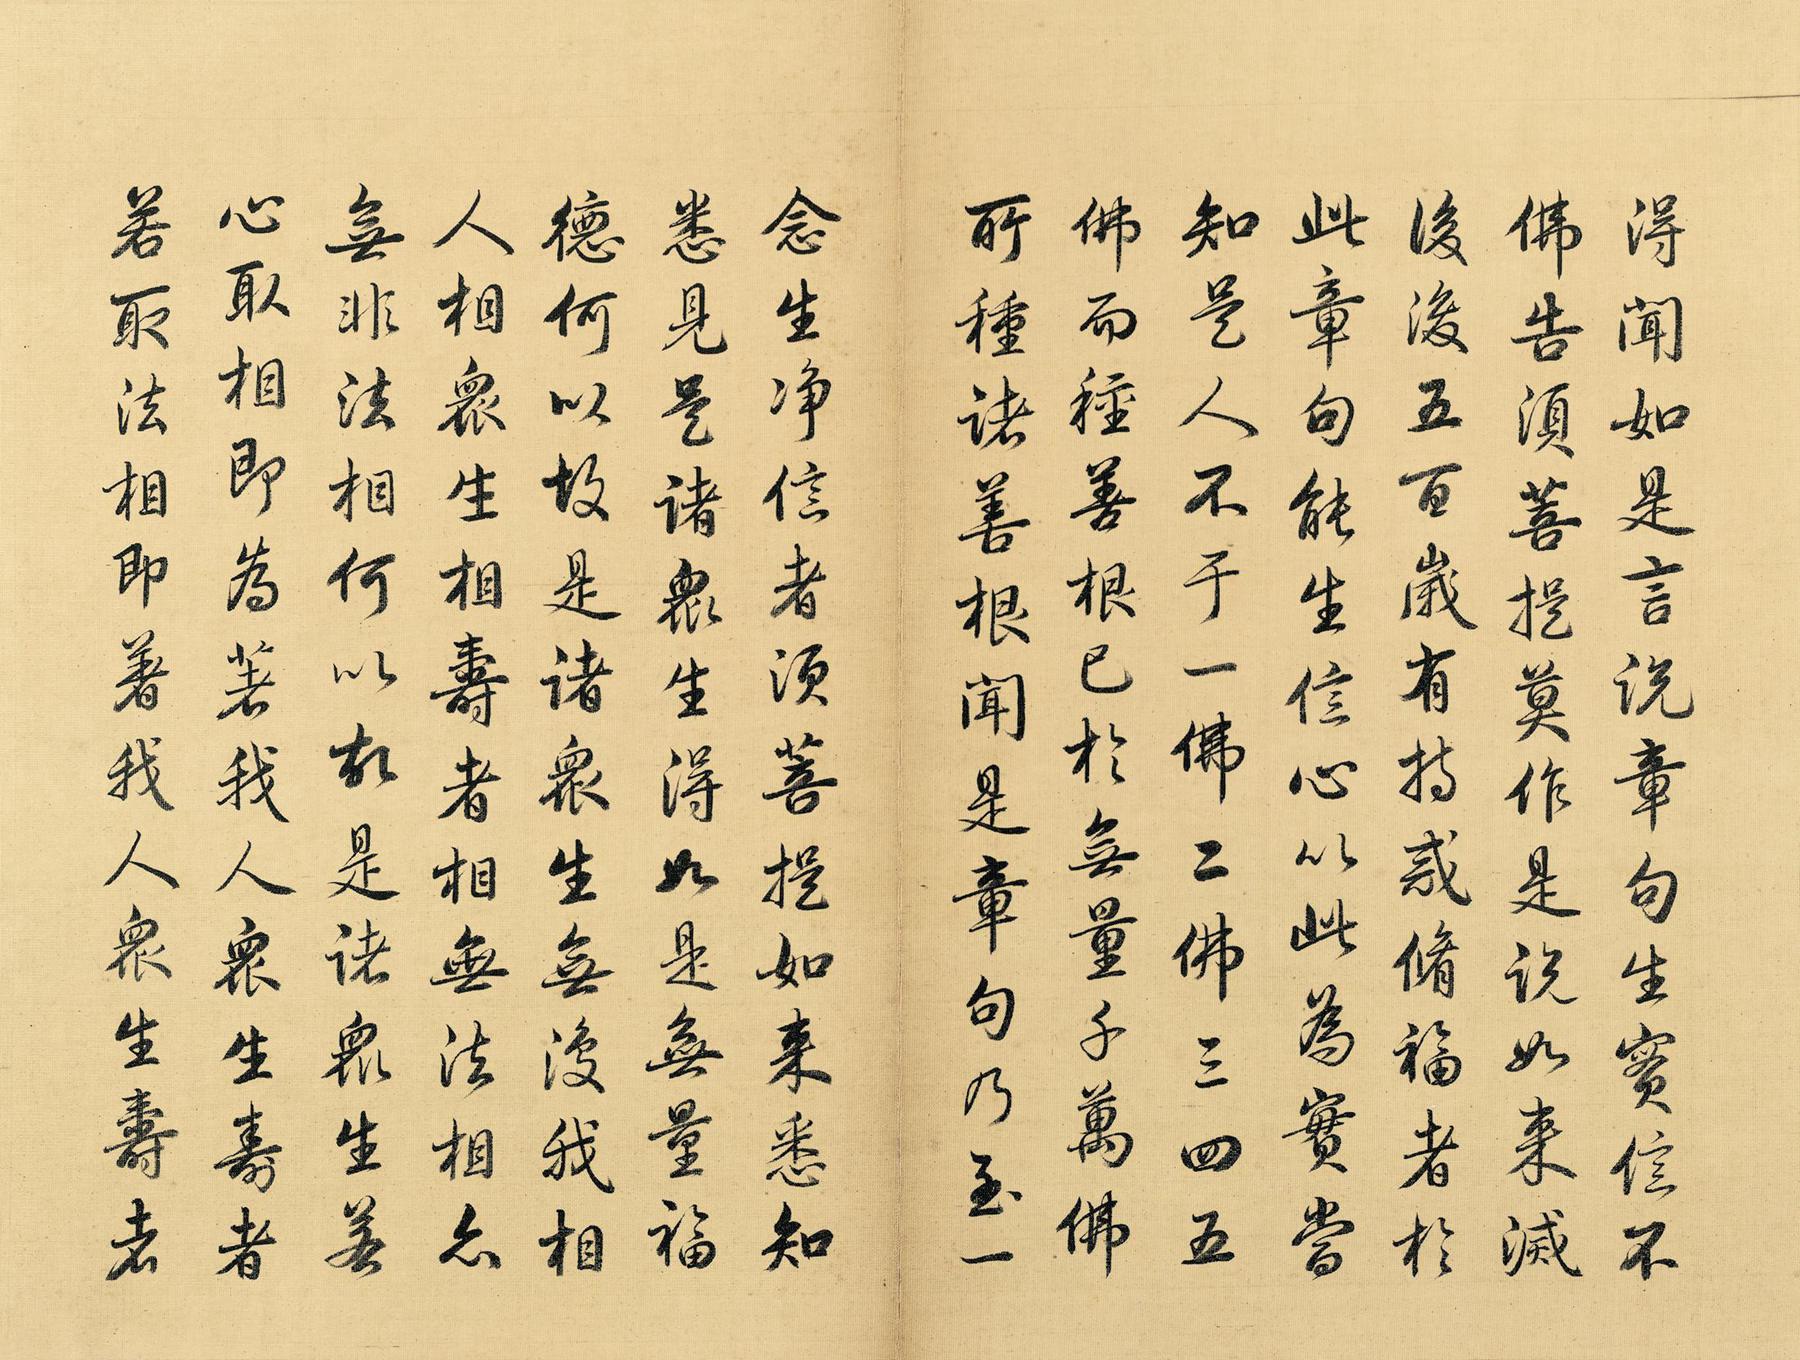 得聞如是言說章句生實信不
佛告須菩提莫作是說如来滅
後後五百歲有持戒脩福者於
此章句能生信心以此為實當
知是人不于一佛二佛三四五
佛而種善根已於無量千萬佛
所種諸善根聞是章句乃至一
念生净信者須菩提如来悉知
悉見是諸眾生得如是無量福
德何以故是諸眾生無復我相
人相眾生相壽者相無法相亦
無非法相何以故是諸眾生若
心取相即為著我人眾生壽者
若取法相即著我人眾生壽者